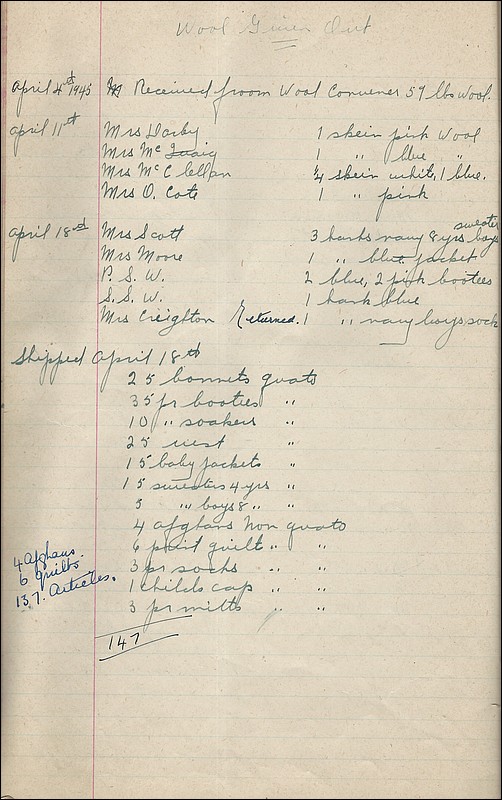 Wool Given Out
April 4th 1945 Received from Wool Convener 59 lbs wool.
April 11th Mrs Darby 1 skein pink wool
Mrs McQuaig 1 " blue "
Mrs McClellan 1/4 skein white, 1 blue.
Mrs O. Cote 1 " pink
sweater
April 18th Mrs Scott 3 hanks navy 8 yrs boys
Mrs Moore 1 " blue jacket
P. S. W. 2 blue, 2 pink bootees
S. S. W. 1 hank blue
Mrs Creighton Returned. 1 " navy boys sock
Shipped April 18th
25 bonnets quato
35 pr booties "
10 " soakers "
25 vest "
15 baby jackets "
15 sweaters 4 yrs "
5 " boys 8 " "
4 afghans Non quato
6 quilt " "
3 pr socks " "
1 childs cap " "
3 pr mitts " "
4 Afghans.
6 Quilts
137. Articles.
147